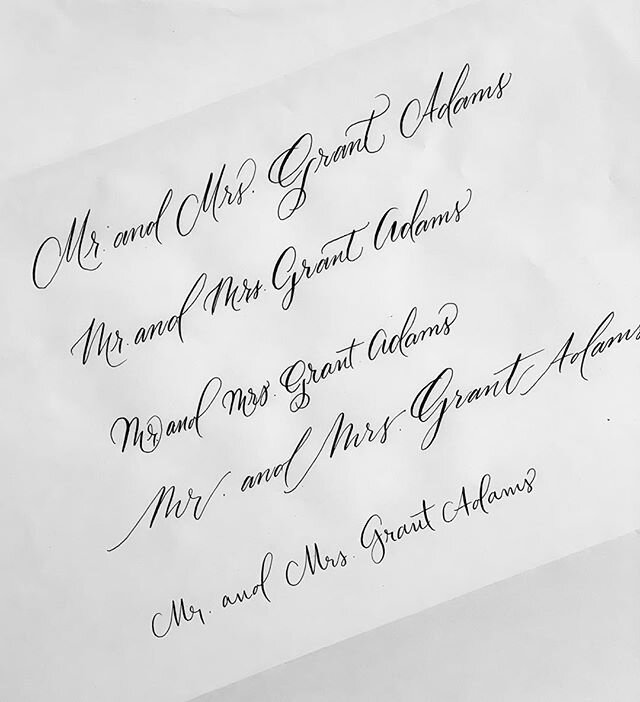 Mr. and Mrs. Grant Adams
Mr. and Mrs. Grant Adams
Mr. and Mrs. Grant Adams
Mr. and Mrs. Grant Adams
Mr. and Mrs. Grant Adams